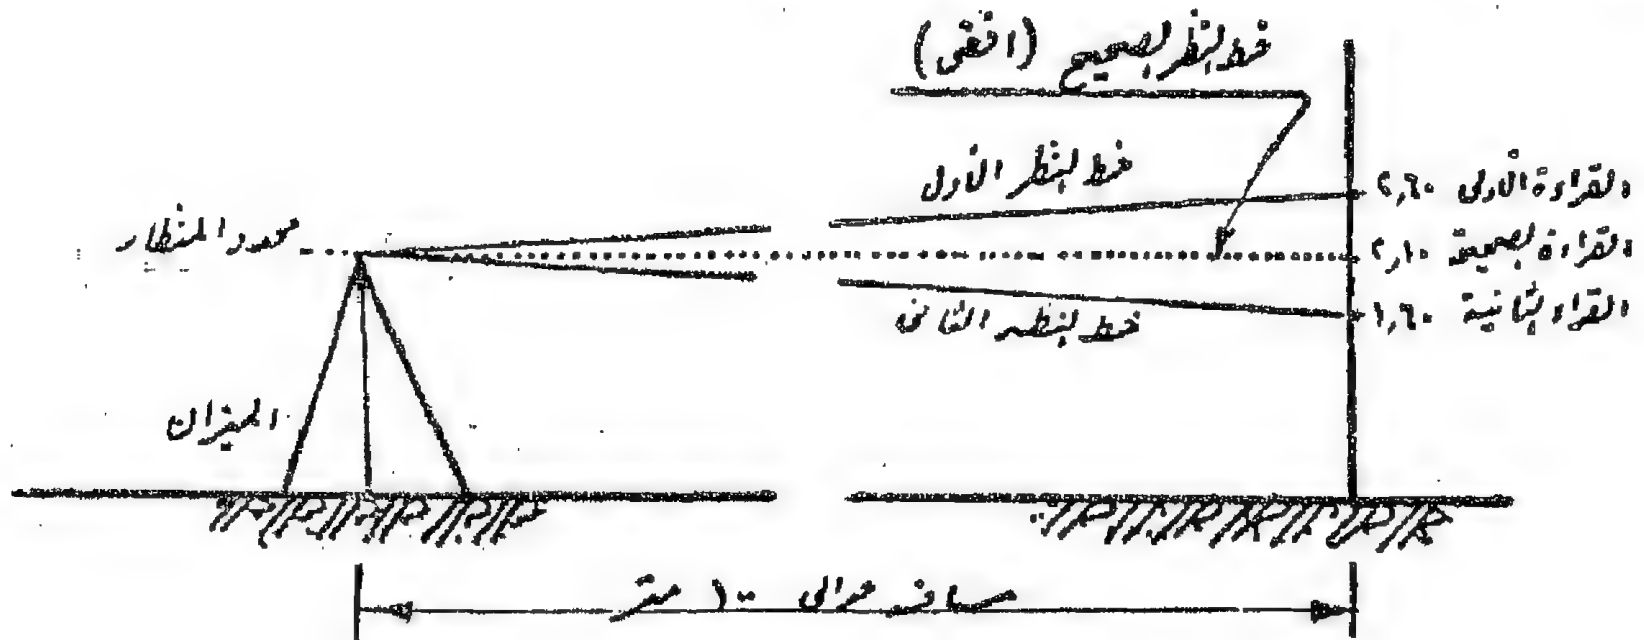 خط النظر الصحيح (افقى)
خط النظر الأول
القراءة الأولى ٢,٦٠
محور المنظار
القراءة الصحيحة ٢,١٠
القراءة الثانية ١,٦٠
خط النظر الثانى
الميزان
مسافة حوالى ١٠٠ متر